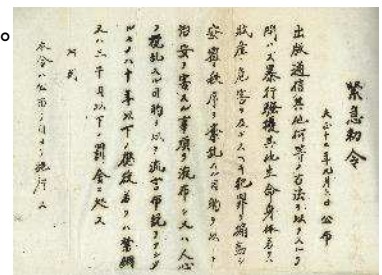 緊急勅令
大正十二年九月七日 公布
出版通信其他何等ノ方法ヲ以テスルヲ
問ハス暴行騒擾其他生命身体若クハ
財産ニ危害ヲ及ホスヘキ犯罪ヲ煽動シ
安寧秩序ヲ紊乱スル目的ヲ以テ
治安ヲ害スル事項ヲ流布シ又ハ人心
ヲ惑乱スル目的ヲ以テ流言布説ヲナシタ
ルモノハ十年以下ノ懲役若クハ禁錮
又ハ三千円以下ノ罰金ニ処ス
附則
本令ハ公布ノ日ヨリ施行ス